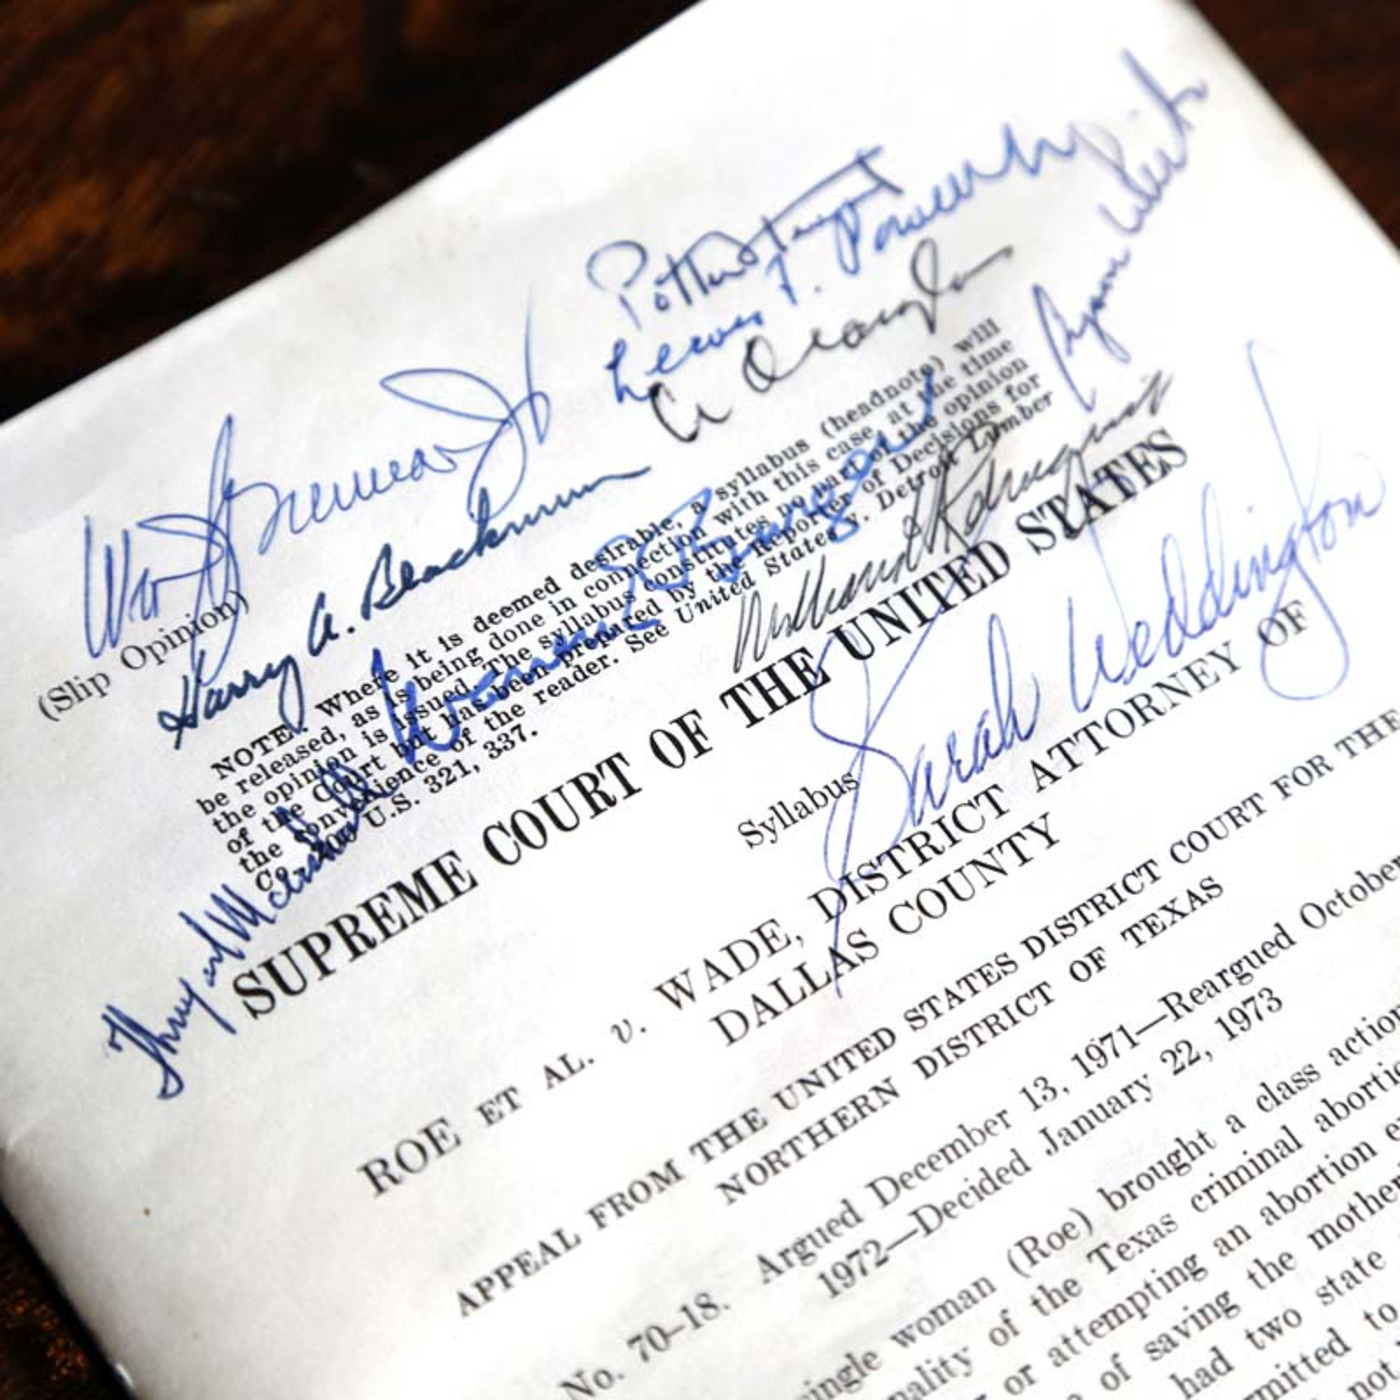 Potter Stewart
Lewis F. Powell Jr
Byron White
Wm J Brennan Jr
W O Douglas
Harry A. Blackmun
Warren E Burger
William H Rehnquist
Thurgood Marshall
Sarah Weddington
(Slip Opinion)
NOTE: Where it is deemed desirable, a syllabus (headnote) will
be released, as is being done in connection with this case, at the time
the opinion is issued. The syllabus constitutes no part of the opinion
of the Court but has been prepared by the Reporter of Decisions for
the convenience of the reader. See United States v. Detroit Lumber
Co., 200 U.S. 321, 337.
SUPREME COURT OF THE UNITED STATES
Syllabus
ROE ET AL. v. WADE, DISTRICT ATTORNEY OF
DALLAS COUNTY
APPEAL FROM THE UNITED STATES DISTRICT COURT FOR THE
NORTHERN DISTRICT OF TEXAS
No. 70–18. Argued December 13, 1971—Reargued October
1972—Decided January 22, 1973
single woman (Roe) brought a class action
of the Texas criminal
or attempting an abortion
of saving the
had two state
to